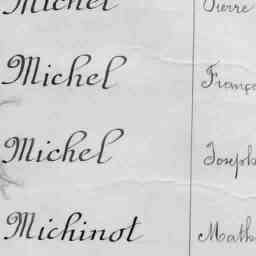 Michel Pierre
Michel
Michel Joseph
Michinot